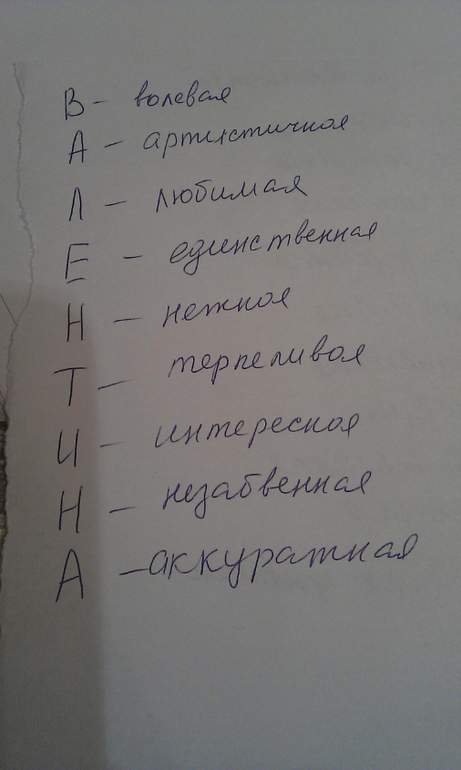 В – волевая
А – артистичная
Л – любимая
Е – единственная
Н – нежная
Т – терпеливая
И – интересная
Н – незабвенная
А – аккуратная